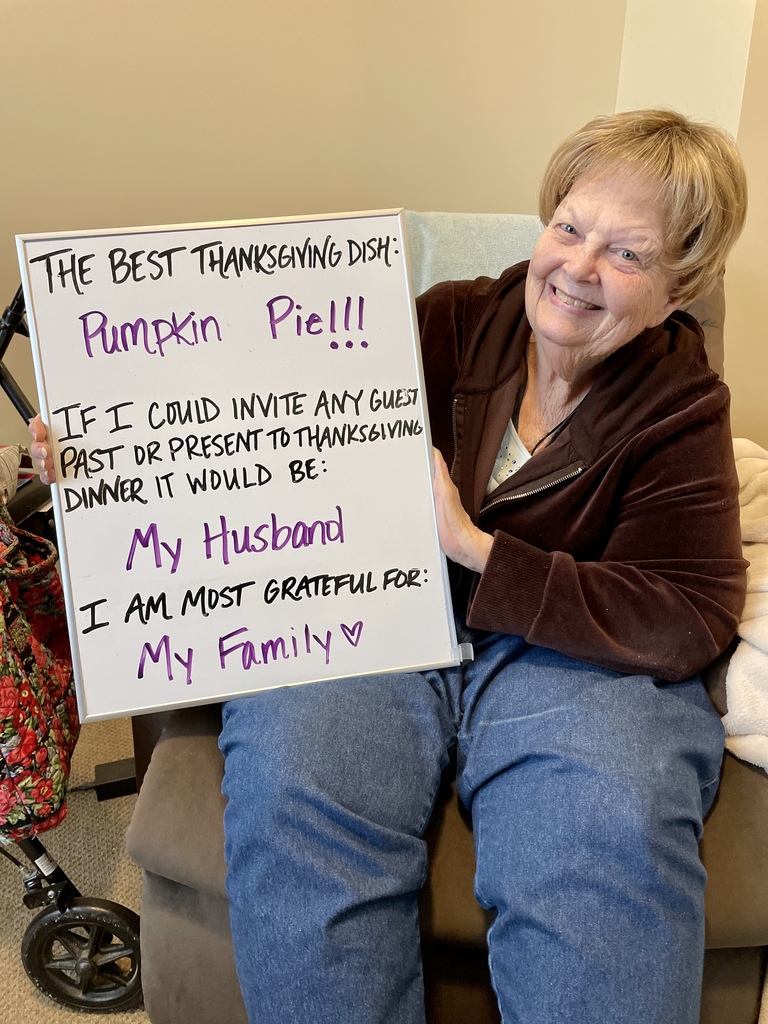 THE BEST THANKSGIVING DISH:
Pumpkin Pie!!!
IF I COULD INVITE ANY GUEST
PAST OR PRESENT TO THANKSGIVING
DINNER IT WOULD BE:
My Husband
I AM MOST GRATEFUL FOR:
My Family ♡